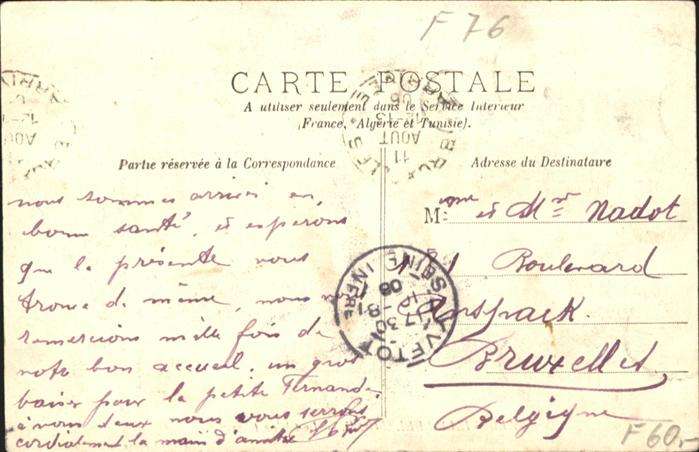 F 76
CARTE POSTALE
A utiliser seulement dans le Service Interieur
(France, Algérie et Tunisie).
Partie réservée à la Correspondance
nous sommes arrivés en
bonne santé, et esperons
que la présente vous
trouve de même, nous
remercions mille fois de
votre bon accueil. un gros
baiser pour la petite Fernande
à vous deux nous vous serrons
cordialement la main d'amitié
Adresse du Destinataire
Mme et Mr Nadot
Boulevard
Anspack.
Bruxelles,
Belgique
F 60,-
YVETOT
SEINE INFRE
11
AOUT
12-13
06